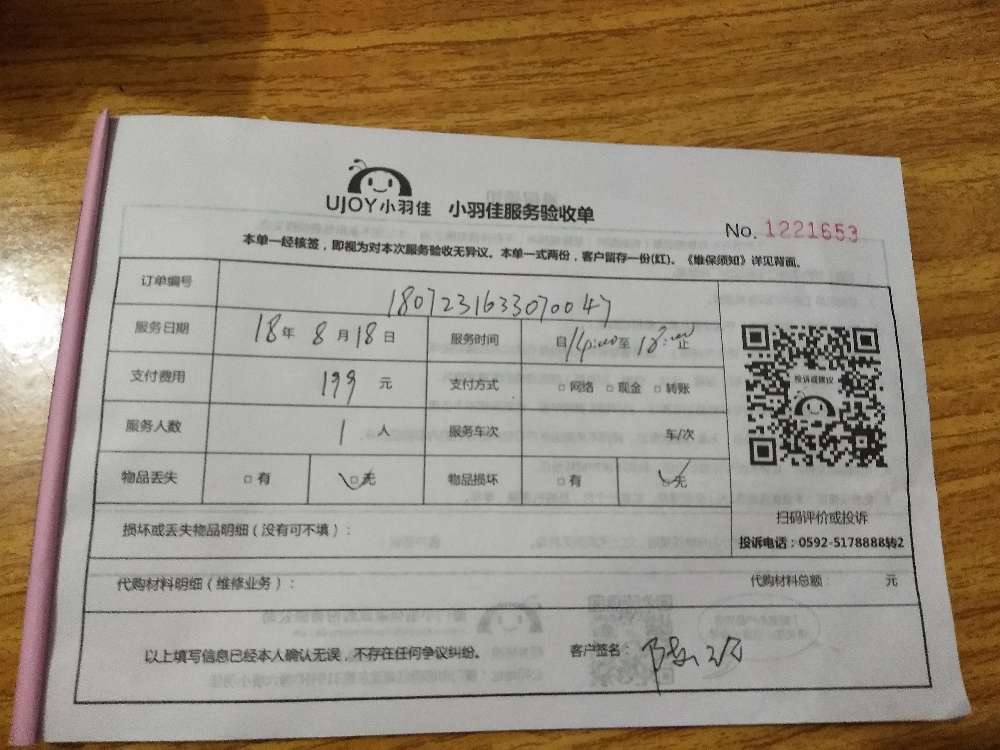 UJOY小羽佳 小羽佳服务验收单
No. 1221653
本单一经核签，即视为对本次服务验收无异议。本单一式两份，客户留存一份(红)。《维保须知》详见背面。
订单编号 1807231633070047
服务日期 18年 8月18日 服务时间 自14:00至18:00止
支付费用 199 元 支付方式 □网络 □现金 □转账
投诉或建议
服务人数 1 人 服务车次 车/次
物品丢失 □有 □无 物品损坏 □有 □无
扫码评价或投诉
损坏或丢失物品明细（没有可不填）：
投诉电话：0592-5178888转2
代购材料明细（维修业务）： 代购材料总额： 元
以上填写信息已经本人确认无误，不存在任何争议纠纷。 客户签名：